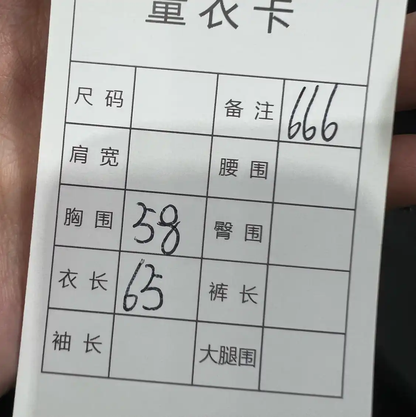 量衣卡
尺码 备注 666
肩宽 腰围
胸围 58 臀围
衣长 65 裤长
袖长 大腿围